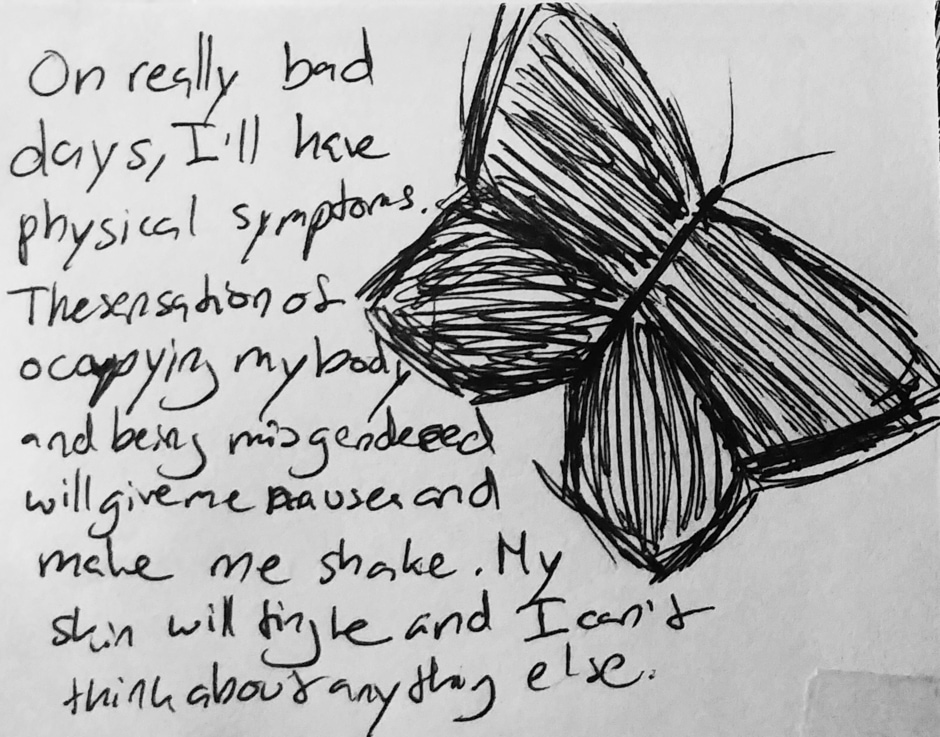 On really bad
days, I'll have
physical symptoms.
The sensation of
ocappying my body
and being misgendeered
will give me nausea and
make me shake. My
skin will tingle and I can't
think about anything else.